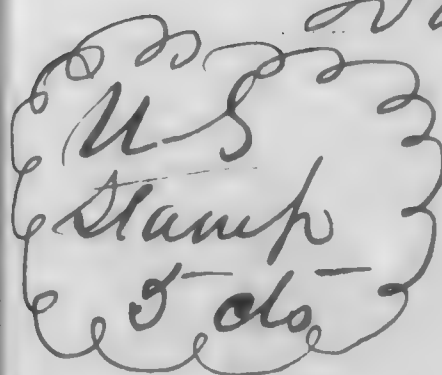 U S
Stamp
5 cts